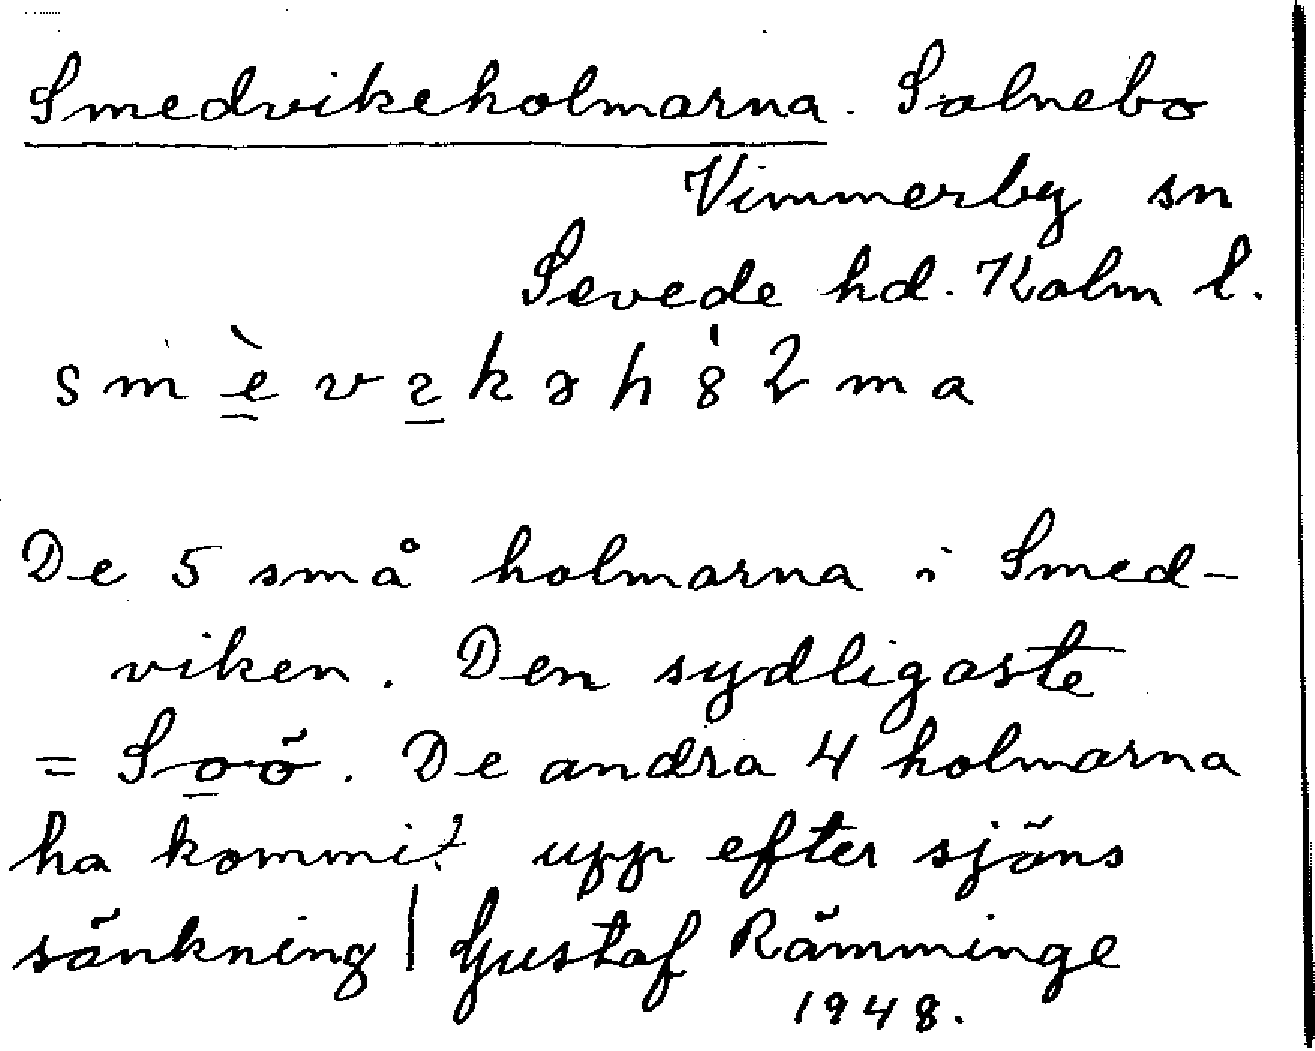 Smedvikeholmarna. Solnebo
Vimmerby sn
Sevede hd. Kalm l.
De 5 små holmarna i Smed-
viken. Den sydligaste
= Soö. De andra 4 holmarna
ha kommit upp efter sjöns
sänkning | Gustaf Rämminge
1948.